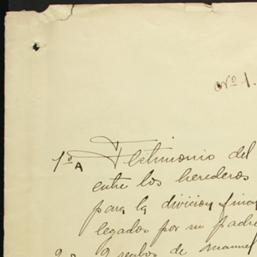 Nº 1.
1º A Testimonio del
entre los herederos
para la division
legados por su padre
de